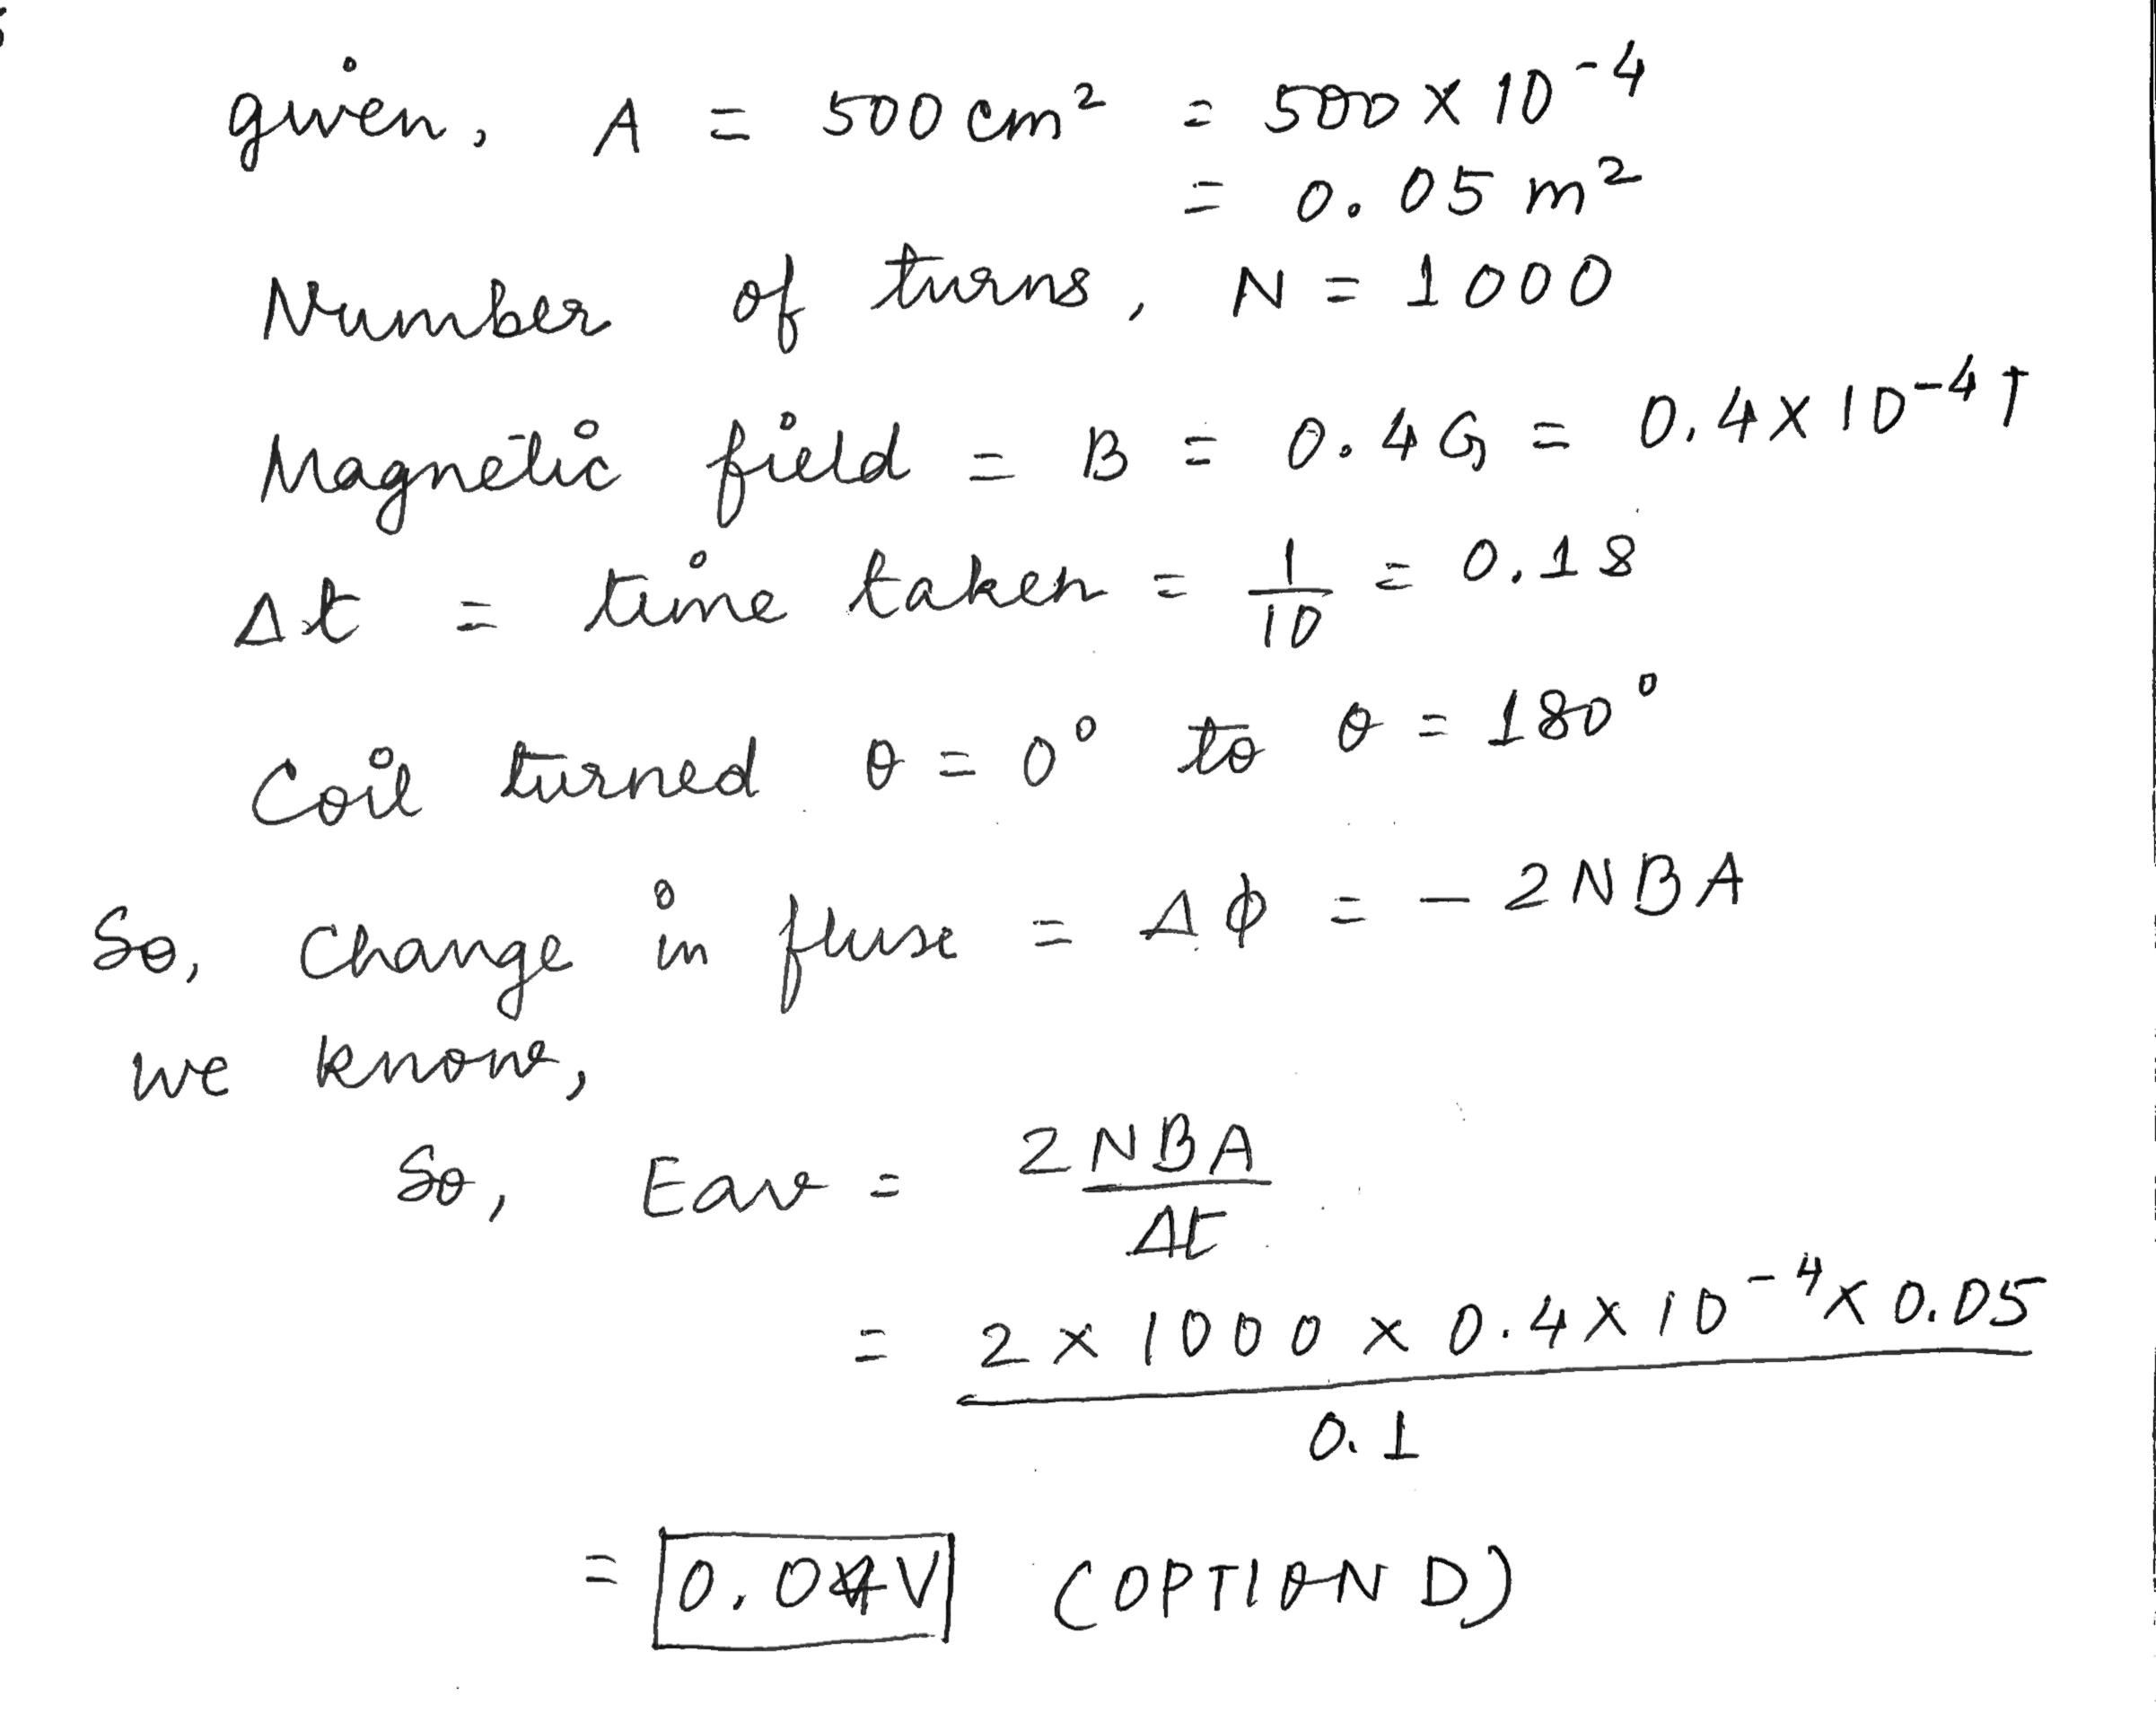 given, A = 500 cm² = 500 × 10⁻⁴
= 0.05 m²
Number of turns, N = 1000
Magnetic field = B = 0.4 G = 0.4 × 10⁻⁴ T
Δt = time taken = 1/10 = 0.1 s
Coil turned θ = 0° to θ = 180°
So, change in flux = Δφ = - 2NBA
we know,
So, Eav = 2NBA/Δt
= 2 × 1000 × 0.4 × 10⁻⁴ × 0.05 / 0.1
= 0.04V (OPTION D)